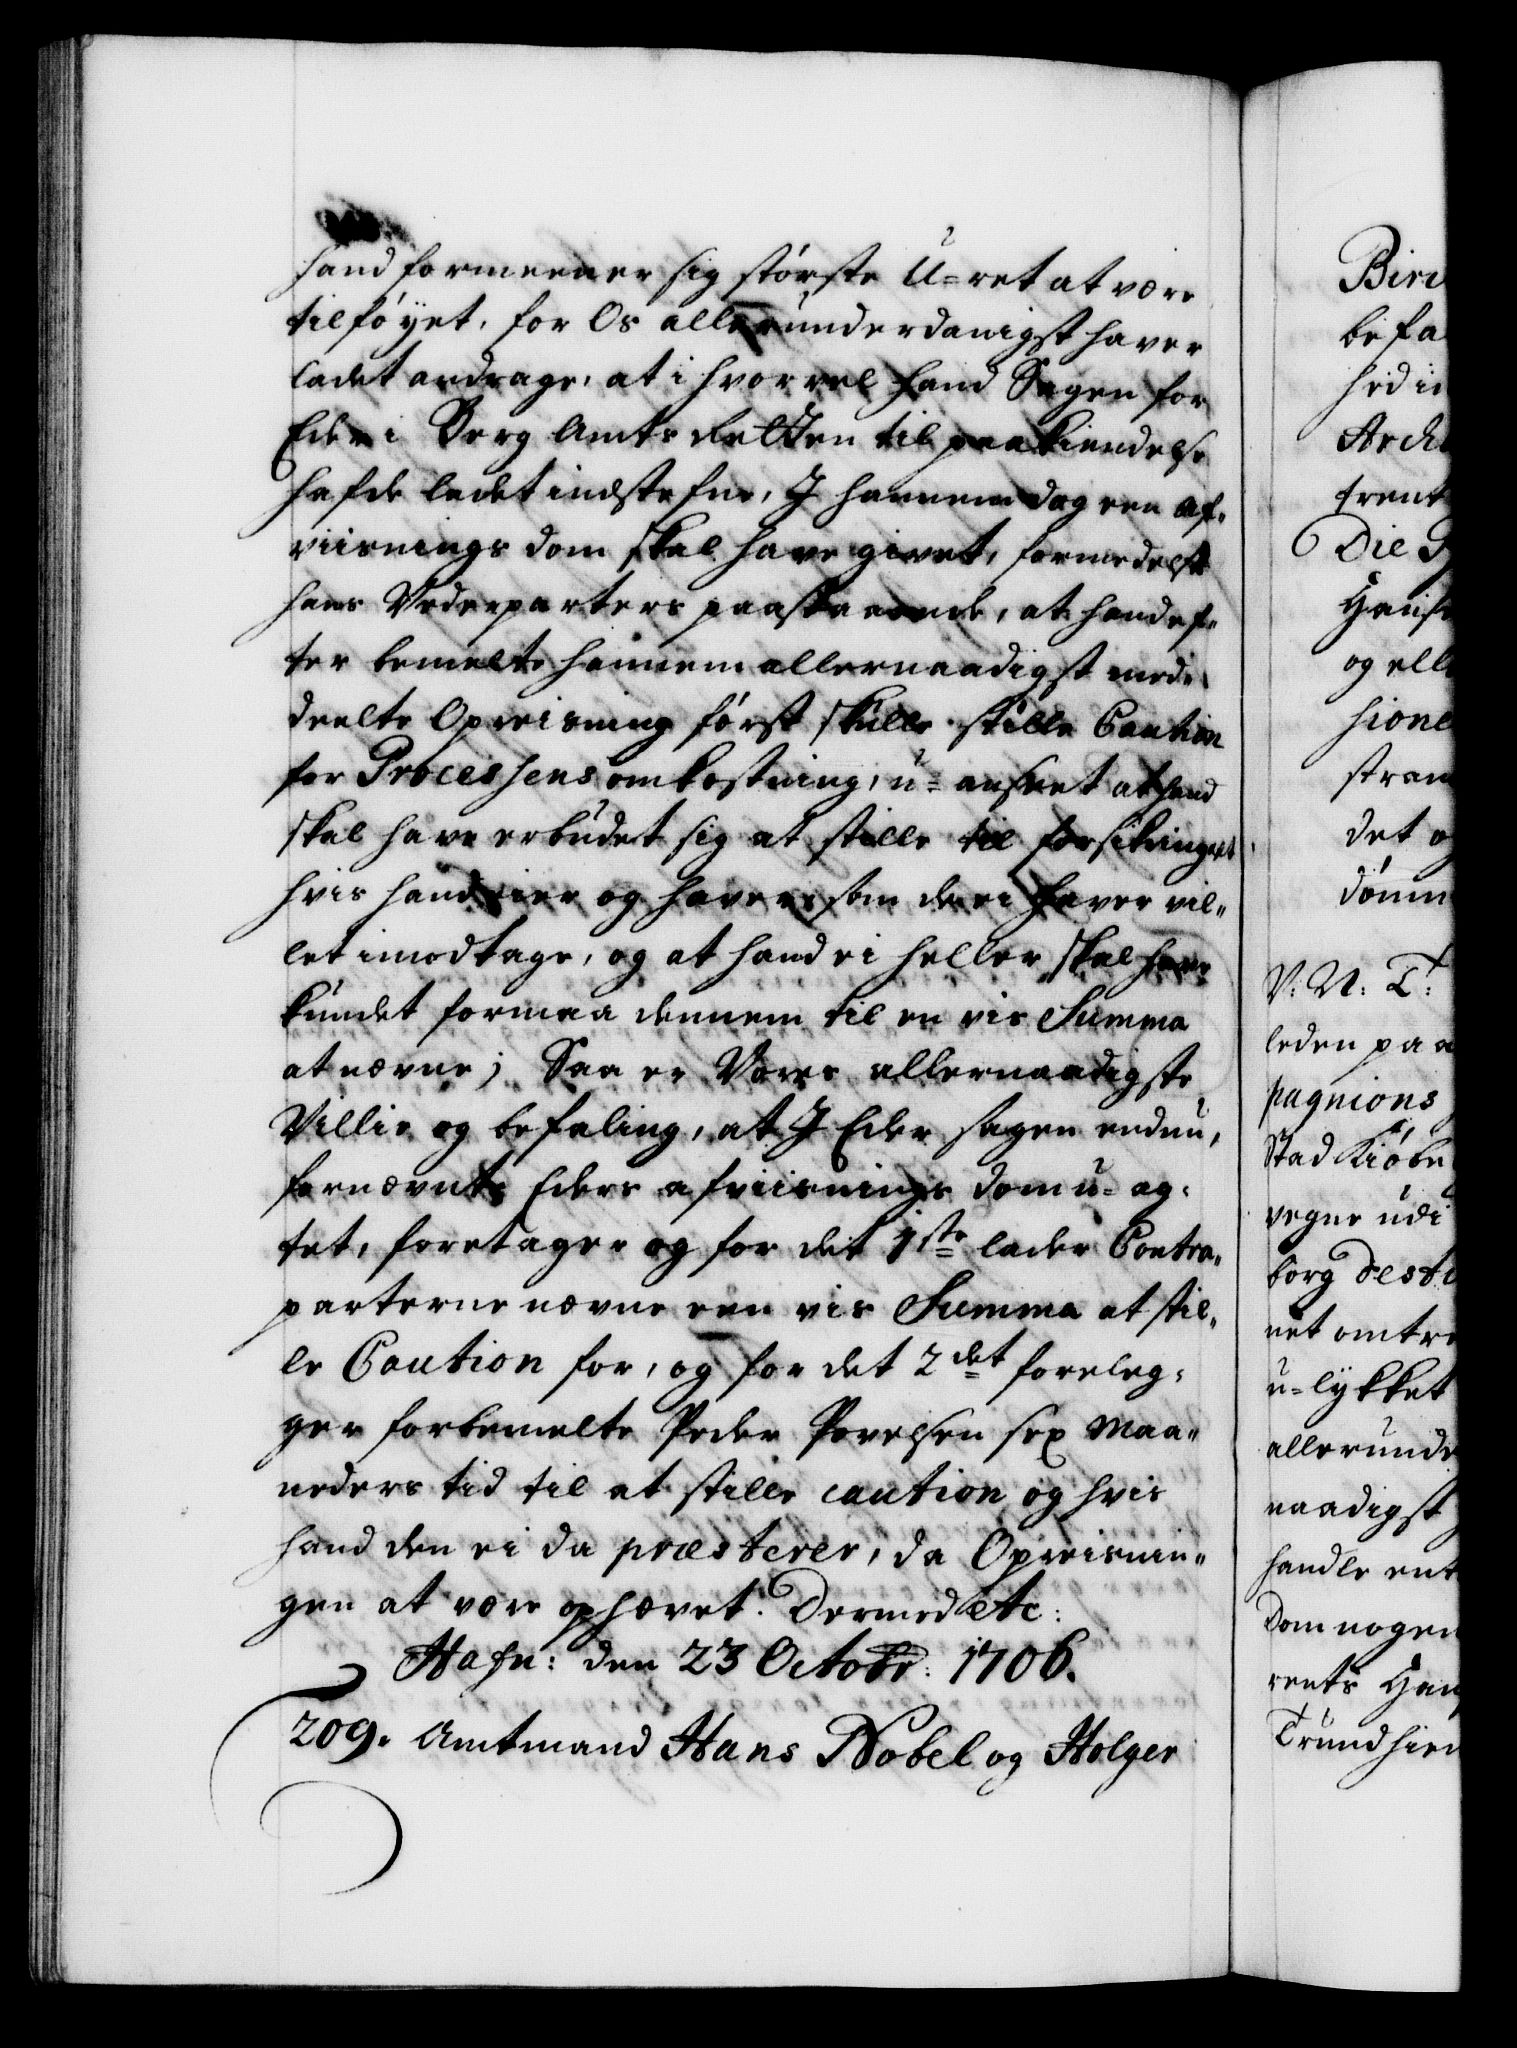 hand formeener sig störste U-ret at være
tilföyet, for Os allerunderdanigst haver
ladet andrage, at i hvorvel hand Sagen for
Eder i Berg Amts Retten til paakiendelse
hafde ladet indstefne, I hannem dog een af-
viisnings dom skal have givet, formedelst
hans Vederparters paastaaende, at hand ef-
ter bemelte hannem allernaadigst med-
deelte Opreisning först skulle stille Caution
for Processens omkostning, u-anseet at hand
skal have erbudet sig at stille til forsikring alt
hvis hand eier og haver, som de ei haver vil-
let imodtage, og at hand ei heller skal have
kundet formaa dennem til en vis Summa
at nævne; Saa er Vores allernaadigste
Villie og befaling, at I Eder sagen endnu,
fornævnte Eders afviisnings dom u-ag-
tet, foretager og for det 1ste lader Contra-
parterne nævne een vis Summa at stil-
le Caution for, og for det 2det foreleg-
ger forbemelte Peder Povelsen sex Maa-
neders tid til at stille caution og hvis
hand den ei da præsterer, da Opreisnin-
gen at være ophævet. Dermed etc:
Hafn: den 23 Octobr: 1706.
209. Amtmand Hans Nobel og Holger
Bire
befa
hed i
Arch
trent
Die
Hans
og ell
hione
stran
det o
dömm
V: N: T:
leden paa
pagnions
Stad Kiöbe
vegne udi
borg desti
net omtre
u-lykket
allerunde
naadigst
handle ent
Dom nogen
rents Han
Trundhiem